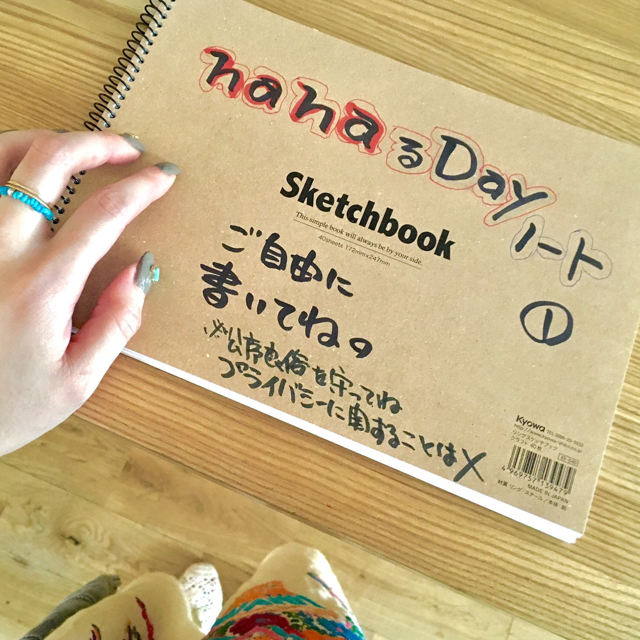 nanaるDayノート
①
Sketchbook
This simple book will always be by your side.
40sheets 172mm×247mm
ご自由に
書いてね。
※公序良俗を守ってね
プライバシーに関することは✗
Kyowa
MADE IN JAPAN